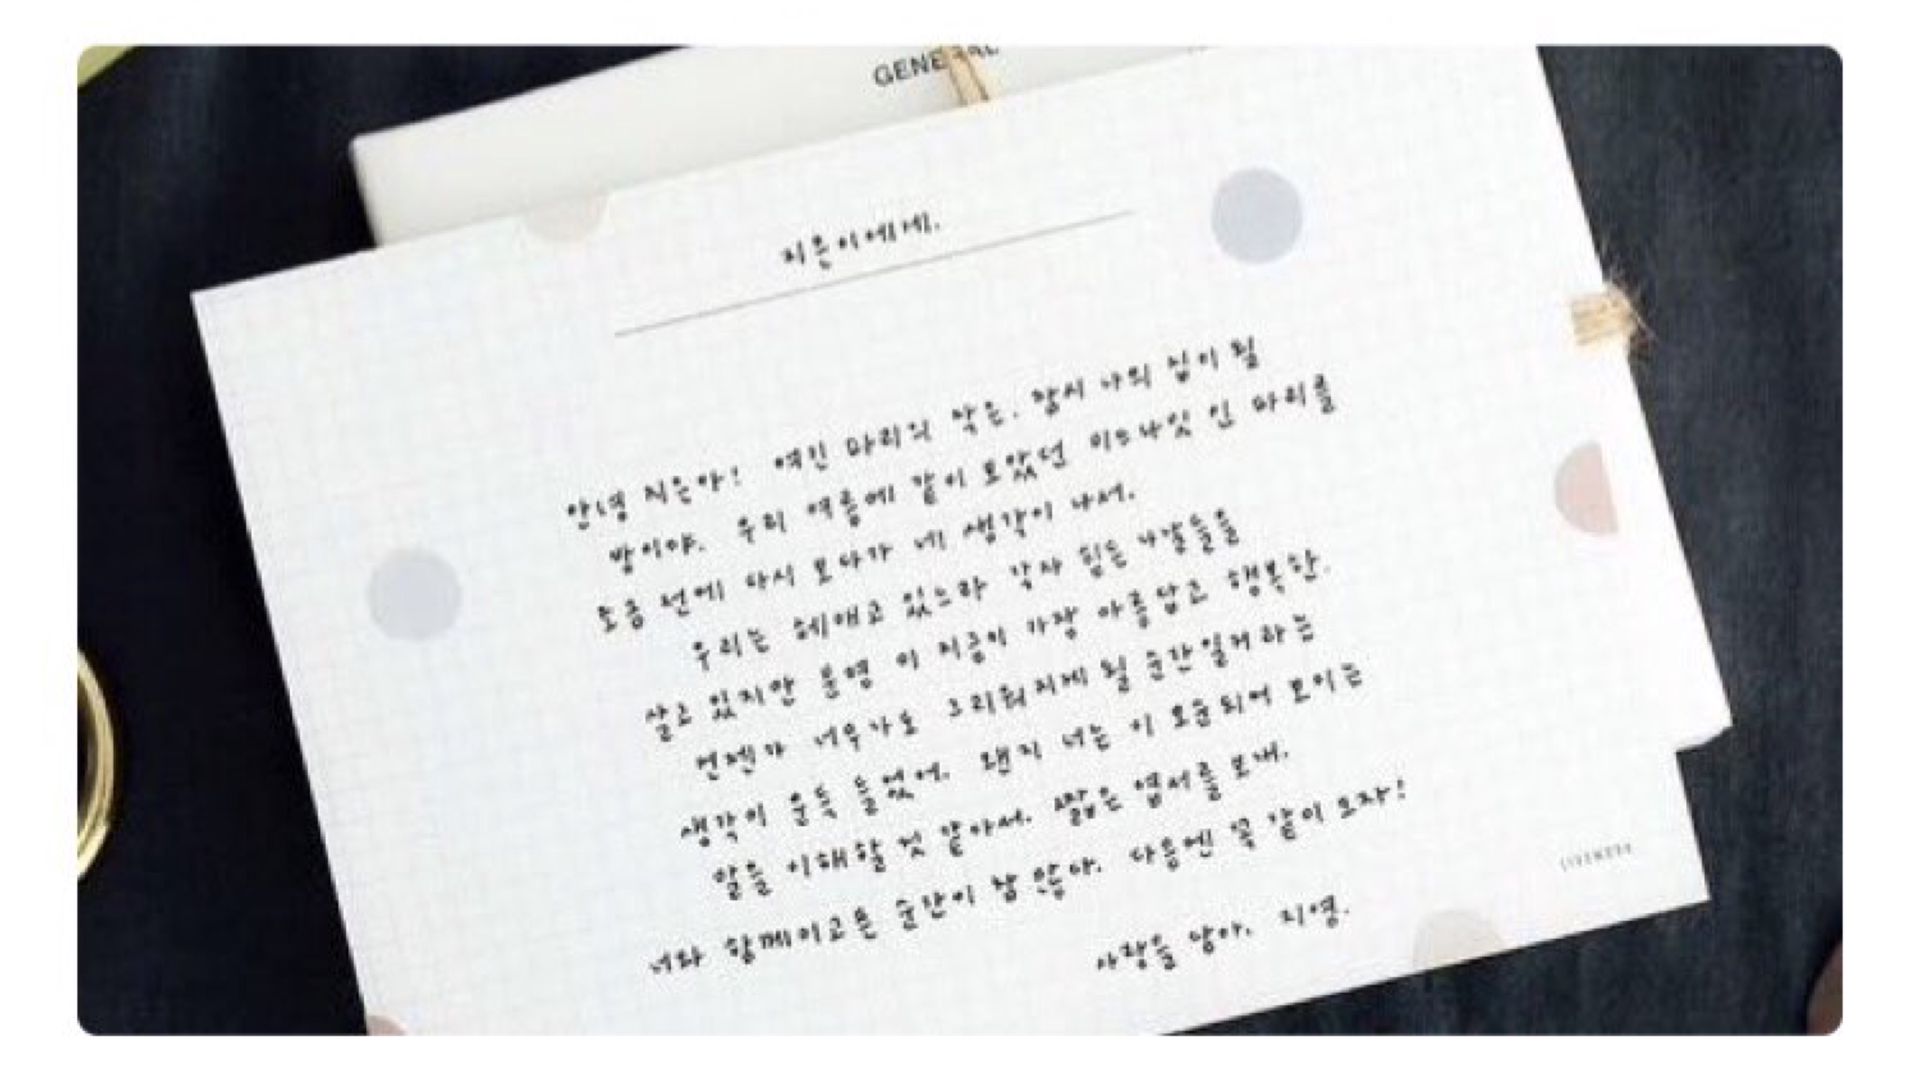 GENERAL
지은이에게.
안녕 지은아! 여긴 파리의 작은. 잠시 나의 집이 될
방이야. 우리 여름에 같이 보았던 미드나잇 인 파리를
조금 전에 다시 보다가 네 생각이 나서.
우리는 헤매고 있느라 각자 힘든 나날들을
살고 있지만 분명 이 지금이 가장 아름답고 행복한.
언젠가 너무나도 그리워지게 될 순간일거라는
생각이 문득 들었어. 왠지 너는 이 모순되어 보이는
말을 이해할 것 같아서. 짧은 엽서를 보내.
너와 함께이고픈 순간이 참 많아. 다음엔 꼭 같이 오자!
사랑을 담아. 지영.
LIVEWORK